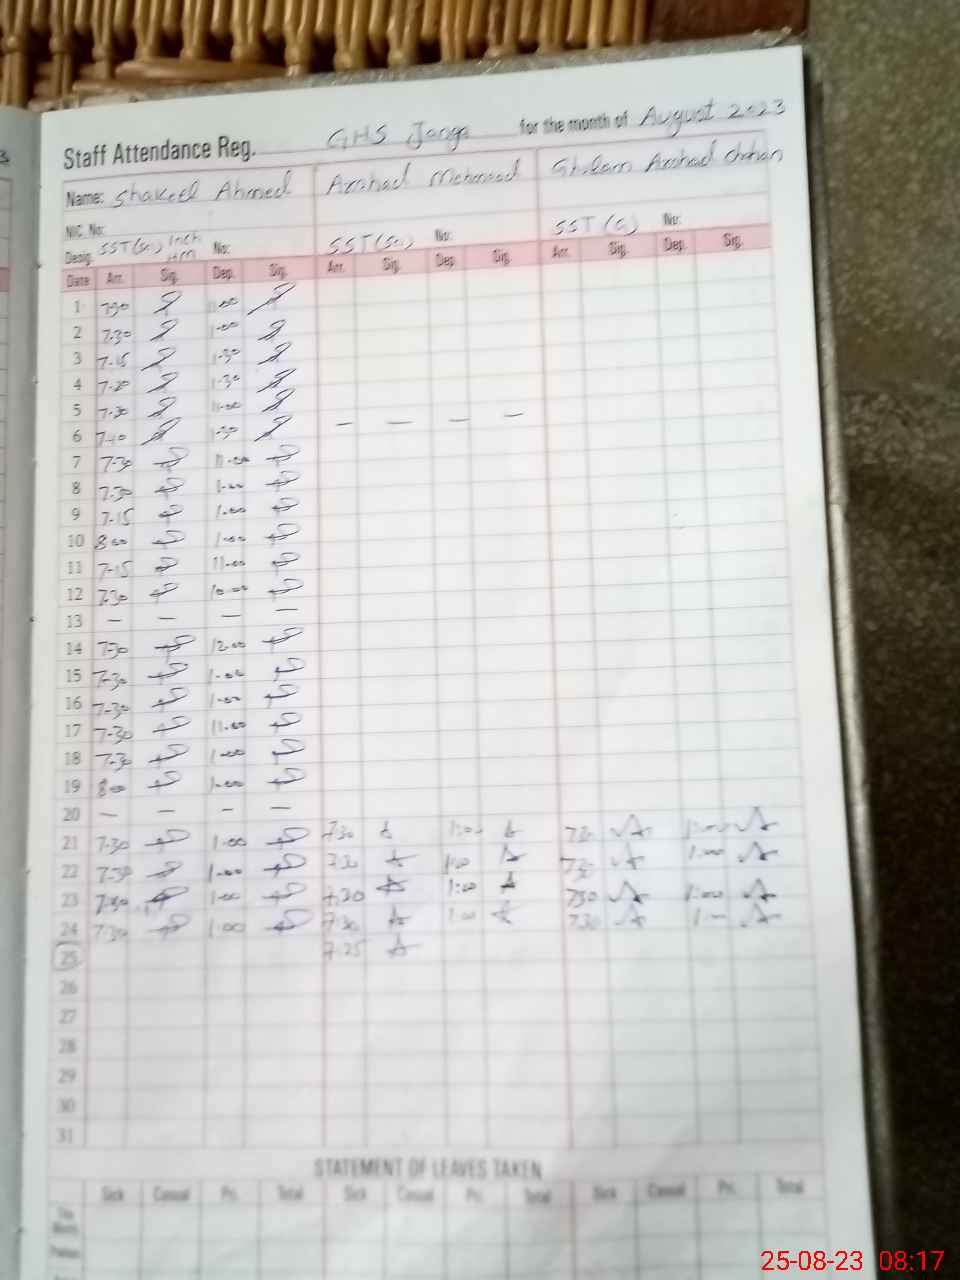 Staff Attendance Reg. GHS for the month of August 2023
Name: Shakeel Ahmed Arshad Mehmood Ghulam Arshad
NIC. No:
Desig. SST(Sc) Inch HM No: SST(Sc) No: SST (G) No:
Date Arr. Sig. Dep. Sig. Arr. Sig. Dep. Sig. Arr. Sig. Dep. Sig.
1 7-30 11-00
2 7.30 1-00
3 7-15 1-30
4 7-20 1-30
5 7-30 11-00
6 7-10 1-30 — — — —
7 7-30 11-00
8 7-30 1-00
9 7-15 1.00
10 8 00 1-00
11 7-15 11-00
12 7.30 10-00
13 — — — —
14 7-30 12-00
15 7-30 1-00
16 7-30 1-00
17 7-30 11-00
18 7-30 1-00
19 8 00 1-00
20 — — — —
21 7-30 1-00 7.30 1:00 7.30 1:00
22 7-30 1-00 7.30 1:00 7.30 1:00
23 7-30 1-00 7.30 1:00 7.30 1:00
24 7-30 1.00 7.30 1:00 7.30 1:00
25 7.25
26
27
28
29
30
31
STATEMENT OF LEAVES TAKEN
Sick Casual Pri. Total Sick Casual Pri. Total Sick Casual Pri. Total
25-08-23 08:17